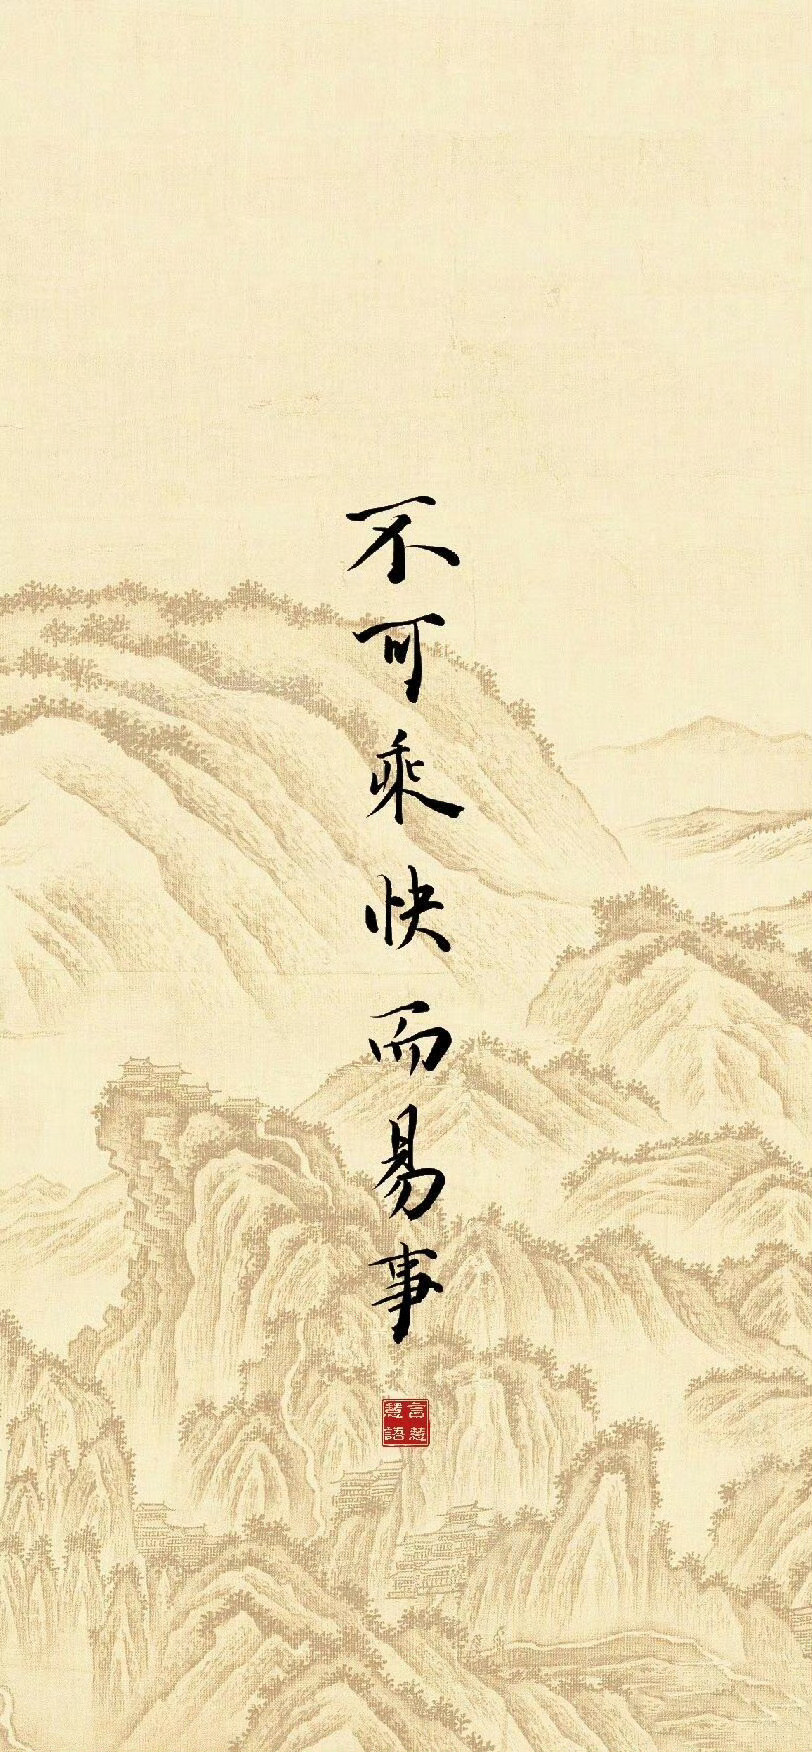 不可乘快而易事
言慧慧語